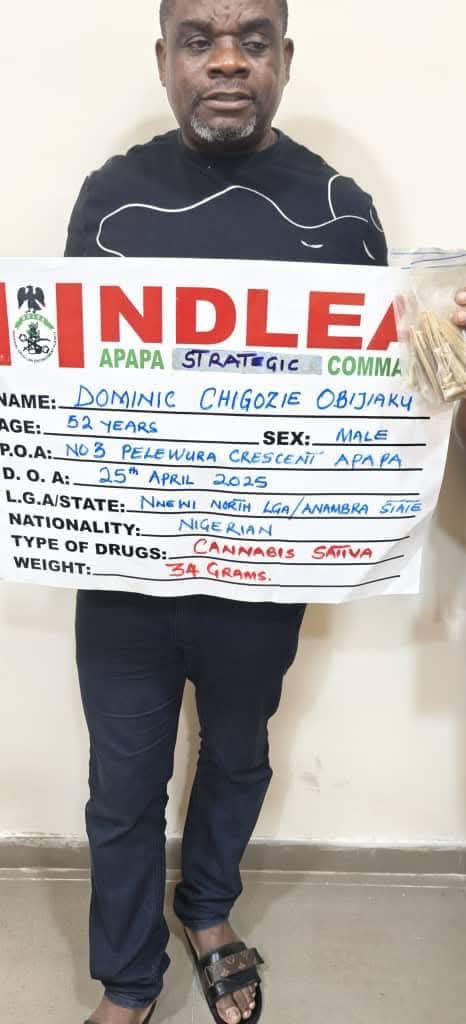 NDLEA
APAPA STRATEGIC COMMA
NAME: DOMINIC CHIGOZIE OBIJIAKU
AGE: 52 YEARS SEX: MALE
P.O.A: NO 3 PELEWURA CRESCENT APAPA
D. O. A: 25th APRIL 2025
L.G.A/STATE: NNEWI NORTH LGA/ANAMBRA STATE
NATIONALITY: NIGERIAN
TYPE OF DRUGS: CANNABIS SATIVA
WEIGHT: 34 GRAMS.